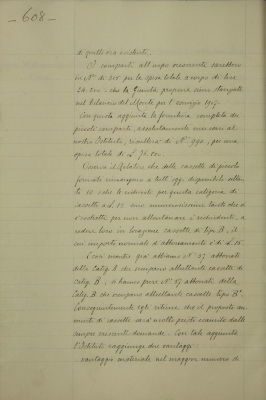 - 608 -
di quelle ora esistenti.
I comparti all'uopo occorrenti sarebbero
in N° di per la spesa totale a corpo di lire
24. che la Giunta propone venga stanziata
nel bilancio del Monte per l'esercizio 1907.
Con questa aggiunta la fornitura completa dei
piccoli comparti, assolutamente necessari al
nostro Istituto, risulterà di N° 990, per una
spesa totale di L.
Osserva il Relatore che delle cassette di piccolo
formato rimangono a tutt'oggi disponibili soltan
to 10 e che le richieste per questa categoria di
cassette a L. 10 sono numerosissime tanto che si
è costretti per non allontanare i richiedenti, a
cedere loro in locazione cassette di tipo B, il
cui importo normale d'abbonamento è di L. 15.
E così mentre già abbiamo N° 37 abbonati
della Categ. A che occupano altrettante cassette di
Categ. B, si hanno pure N° 37 abbonati della
Categ. B che occupano altrettante cassette tipo B.
Conseguentemente egli ritiene, che il proposto au
mento di cassette sarà molto presto esaurito dalle
sempre crescenti domande. Con tale aggiunta
l'Istituto raggiunge due vantaggi:
vantaggio materiale nel maggior numero di